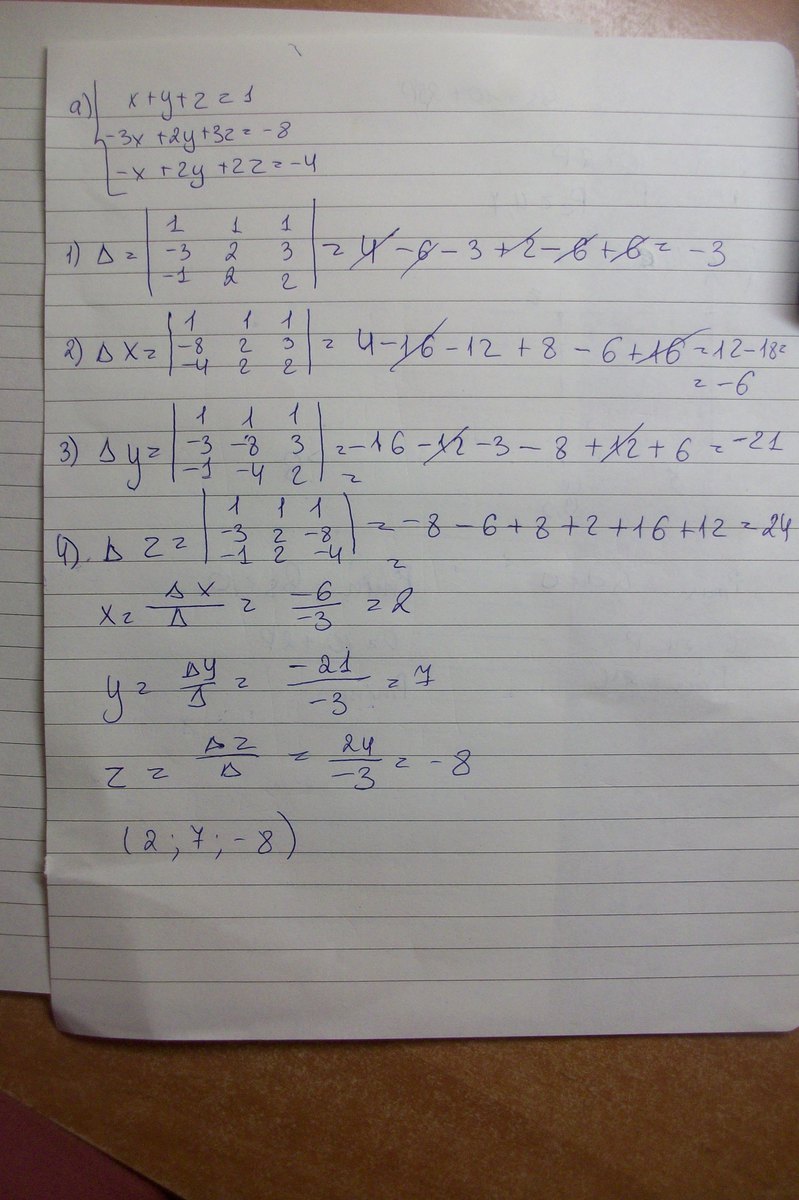 а) x+y+z=1
-3x+2y+3z=-8
-x+2y+2z=-4
1) Δ= | 1 1 1 |
| -3 2 3 | = 4-6-3+2-6+6= -3
| -1 2 2 |
2) Δx= | 1 1 1 |
| -8 2 3 | = 4-16-12+8-6+16=12-18=
| -4 2 2 | = -6
3) Δy= | 1 1 1 |
| -3 -8 3 | =-16-12-3-8+12+6=-21
| -1 -4 2 | =
4). Δz= | 1 1 1 |
| -3 2 -8 | =-8-6+8+2+16+12=24
| -1 2 -4 | =
x= Δx/Δ = -6/-3 =2
y= Δy/Δ = -21/-3 =7
z= Δz/Δ = 24/-3 = -8
(2; 7; -8)